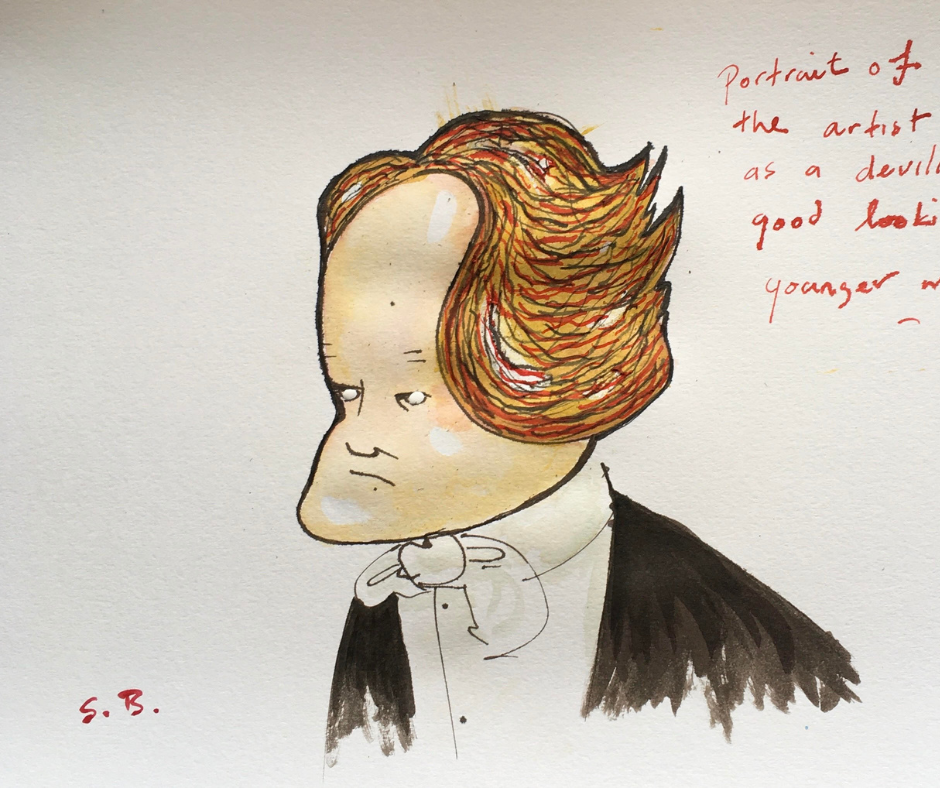 Portrait of
the artist
as a devil
good looki
younger
S.B.